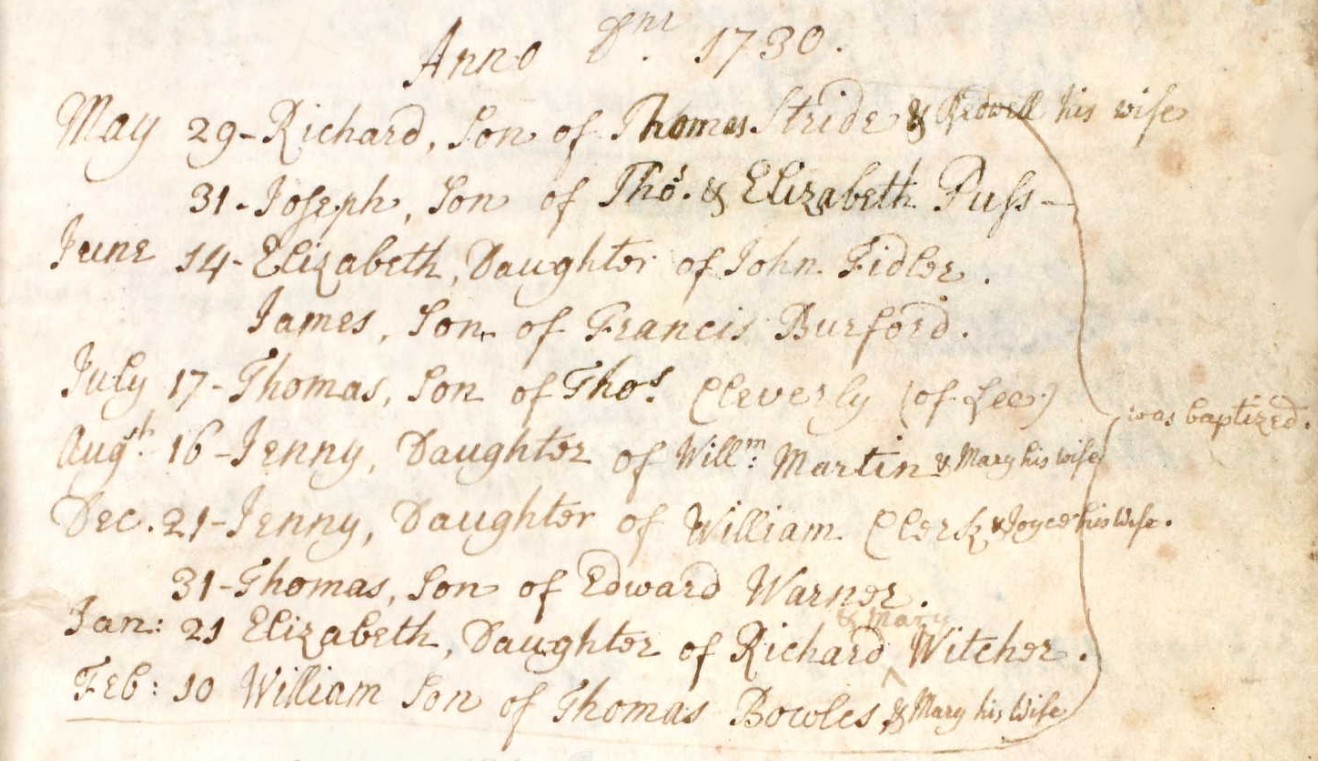 Anno Dni. 1730.
May 29 - Richard, Son of Thomas Stride & his wife
31 - Joseph, Son of Thos. & Elizabeth Puss -
June 14 - Elizabeth, Daughter of John Fidler.
James, Son of Francis Burford.
July 17 - Thomas, Son of Thos Cleverly (of Lee)
Augst. 16 - Jenny, Daughter of Willm: Martin & Mary his wife
was baptized.
Dec. 21 - Jenny, Daughter of William Clerk & Joyce his Wife.
31 - Thomas, Son of Edward Warner.
Jan: 21 Elizabeth, Daughter of Richard & Mary Witcher.
Feb: 10 William Son of Thomas Bowles, & Mary his Wife